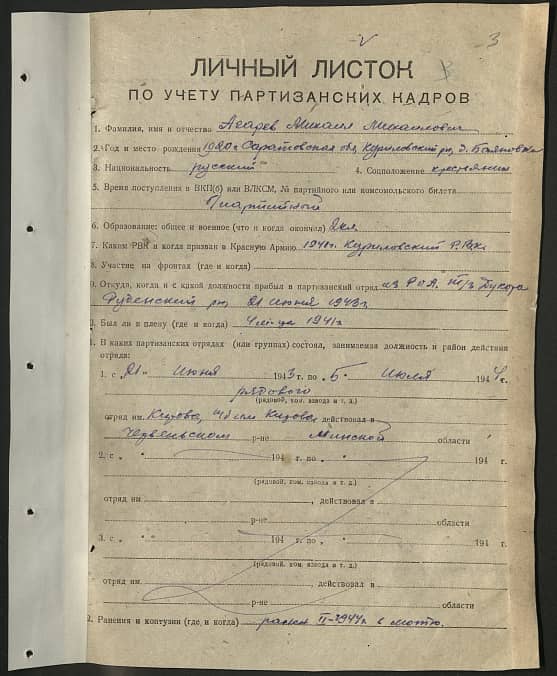 3
ЛИЧНЫЙ ЛИСТОК
ПО УЧЕТУ ПАРТИЗАНСКИХ КАДРОВ
1. Фамилия, имя и отчество Агарев Михаил Михайлович
2. Год и место рождения 1920 г. Саратовская обл. Куриловский р-н, д. Баяновка
3. Национальность русский 4. Соцположение крестьянин
5. Время поступления в ВКП(б) или ВЛКСМ, № партийного или комсомольского билета
б/партийный
6. Образование: общее и военное (что и когда окончил) 2 кл.
7. Каким РВК и когда призван в Красную Армию 1940г. Куриловский Р.В.К.
8. Участие на фронтах (где и когда)
9. Откуда, когда и с какой должности прибыл в партизанский отряд из РОА
Руденский р-н 21 июня 1943г.
0. Был ли в плену (где и когда) 1941г
1. В каких партизанских отрядах (или группах) состоял, занимаемая должность и район действия
отряда:
1. с „21„ Июня 1943 г. по „5„ Июля 1944г.
рядового
(рядовой, ком. взвода и т. д.)
отряд им. Кирова, им Кирова, действовал в
Червеньском р-не Минской области
2. с „ „ 194 г. по „ „ 194 г.
(рядовой, ком. взвода и т. д.)
отряд им. , действовал в
р-не области
3. с „ „ 194 г. по „ „ 194 г.
(рядовой, ком. взвода и т. д.)
отряд им. , действовал в
р-не области
2. Ранения и контузии (где и когда) ранен II-1944г. в